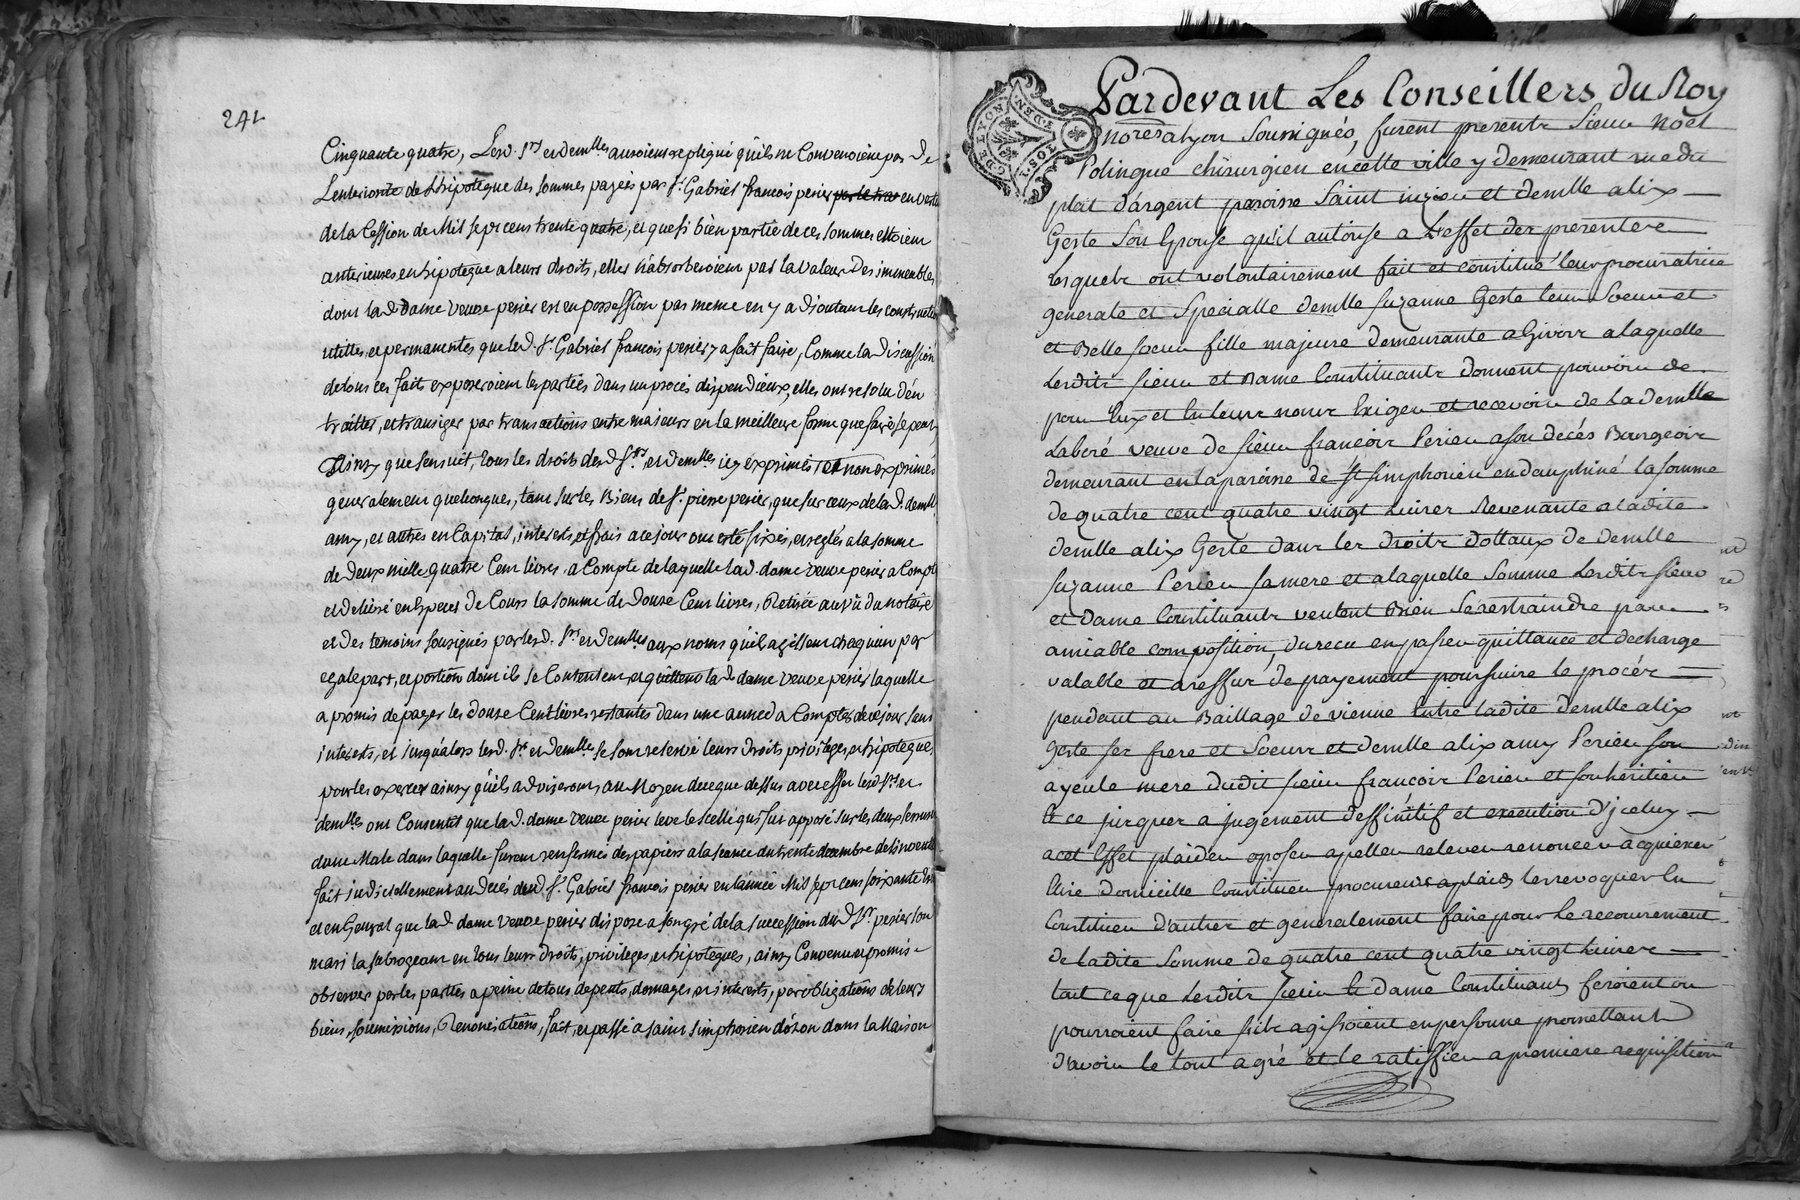 241
Cinquante quatre, Lesd. Srs et demlles auroient repliqué qu'ils ne Convenoient pas de
L'anteriorité de Lhipoteque des sommes payées par Sr. Gabriel françois perier en vertu
de la Cession de Mil sept cens trente quatre, et que si bien partie de ces sommes étoient
anterieures en hipoteque a leurs droits, elles n'absorberoient pas la valeur des immeubles
dont la de Dame veuve perier est en possession pas meme en y adjoutant les constructions
utilles, et permanentes que led. Sr. Gabriel françois perier y a fait faire, Comme la discussion
de tous ces faits exposeroient les parties dans un procés dispendieux, elles ont resolu d'en
traitter, et transiger par transactions entre majeurs en la meilleure forme que faire se peut,
Ainsy que sensuit, tous les droits desd Srs et demlles icy exprimés, et non exprimés
generalement quelconques, tant sur les Biens de Sr. pierre perier, que sur ceux de la d. demlle
amy, et autres en Capital, interests, et frais a ce jour ont esté fixés, et reglés a la somme
de deux mille quatre Cent livres, a Compte de laquelle la d. dame veuve perier a Compté
et delivré en Especes de Cours la somme de Douze Cent livres, Retirée au vû du notaire
et des temoins sousignés par lesd. Srs et demlles aux noms qu'ils agissent chaquun par
egale part, et portion dont ils se Contentent, et quittent la de dame veuve perier laquelle
a promis de payer les douze Cent livres restantes dans une année a Compter de ce jour sans
interests, et jusqu'alors lesd. Srs et demlles se sont reservé leurs droits privileges, et hipoteques
pour les exercer ainsy qu'ils adviseront, au Moyen de ce que dessus a cet effet lesd Srs et
demlles ont Consenti que la d. dame veuve perier leve le scellé qui fut apposé sur les deux serrures
d'une Male dans laquelle furent renfermés des papiers a la seance du trente decembre de l'inventaire
fait judiciellement au decés dud Sr. Gabriel françois perier en l'année Mil sept cens soixante
et en General que la d. dame veuve perier dispose a son gré de la succession dud Sr. perier son
mari la subrogeant en tous leurs droits, privileges, et hipoteques, ainsy Convenu et promis
observer par les parties a peine de tous depents, domages, et interests, par obligations de leurs
biens, soumissions, Renonciations, fait, et passé a saint simphorien d'ozon dans la Maison
GDE LYON
Pardevant Les Conseillers du Roy
nores a lyon Soussignés, furent presents Sieur Noël
Polingue chirurgien en cette ville y demeurant rue du
plat d'argent paroisse Saint nizier et demlle alix
Geste Son Epouse qu'il autorise a L'effet des presentes
lesquels ont volontairement fait et constitué leur procuratrice
generale et Specialle demlle Suzanne Geste leur Soeur et
et Belle soeur fille majeure demeurante a Givors a laquelle
Lesdits sieur et Dame Constituants donnent pouvoir de
pour Eux et En leurs noms Exiger et recevoir de la demlle
Laboré veuve de sieur françois Perier a son decés Bourgeois
demeurant en la paroisse de St Simphorien en dauphiné la somme
de quatre cent quatre vingt Livres Revenante a ladite
demlle alix Geste dans les droits dottaux de demlle
Suzanne Perier sa mere et a laquelle Somme Lesdits sieur
et Dame Constituants veulent Bien Se restraindre par
amiable composition, du recu en passer quittance et decharge
valable et a deffaut de payement poursuivre le procés
pendant au Baillage de vienne Entre ladite Demlle alix
Geste ses frere et Soeurs et demlle alix amy Perier son
ayeule mere dudit sieur françois Perier et son heritier
Et ce jusques a jugement deffinitif et execution d'jceluy
a cet Effet plaider oposer apeller relever renoncer acquiescer
Elire Domicille Constituer procureurs a plaids les revoquer En
Constituer d'autres et generalement faire pour Le recouvrement
de Ladite Somme de quatre cent quatre vingt Livres
tout ce que Lesdits sieur Et dame Constituants feroient ou
pourroient faire s'ils agissoient en personne promettant
d'avoir Le tout agré et Le ratiffier a premiere requisition